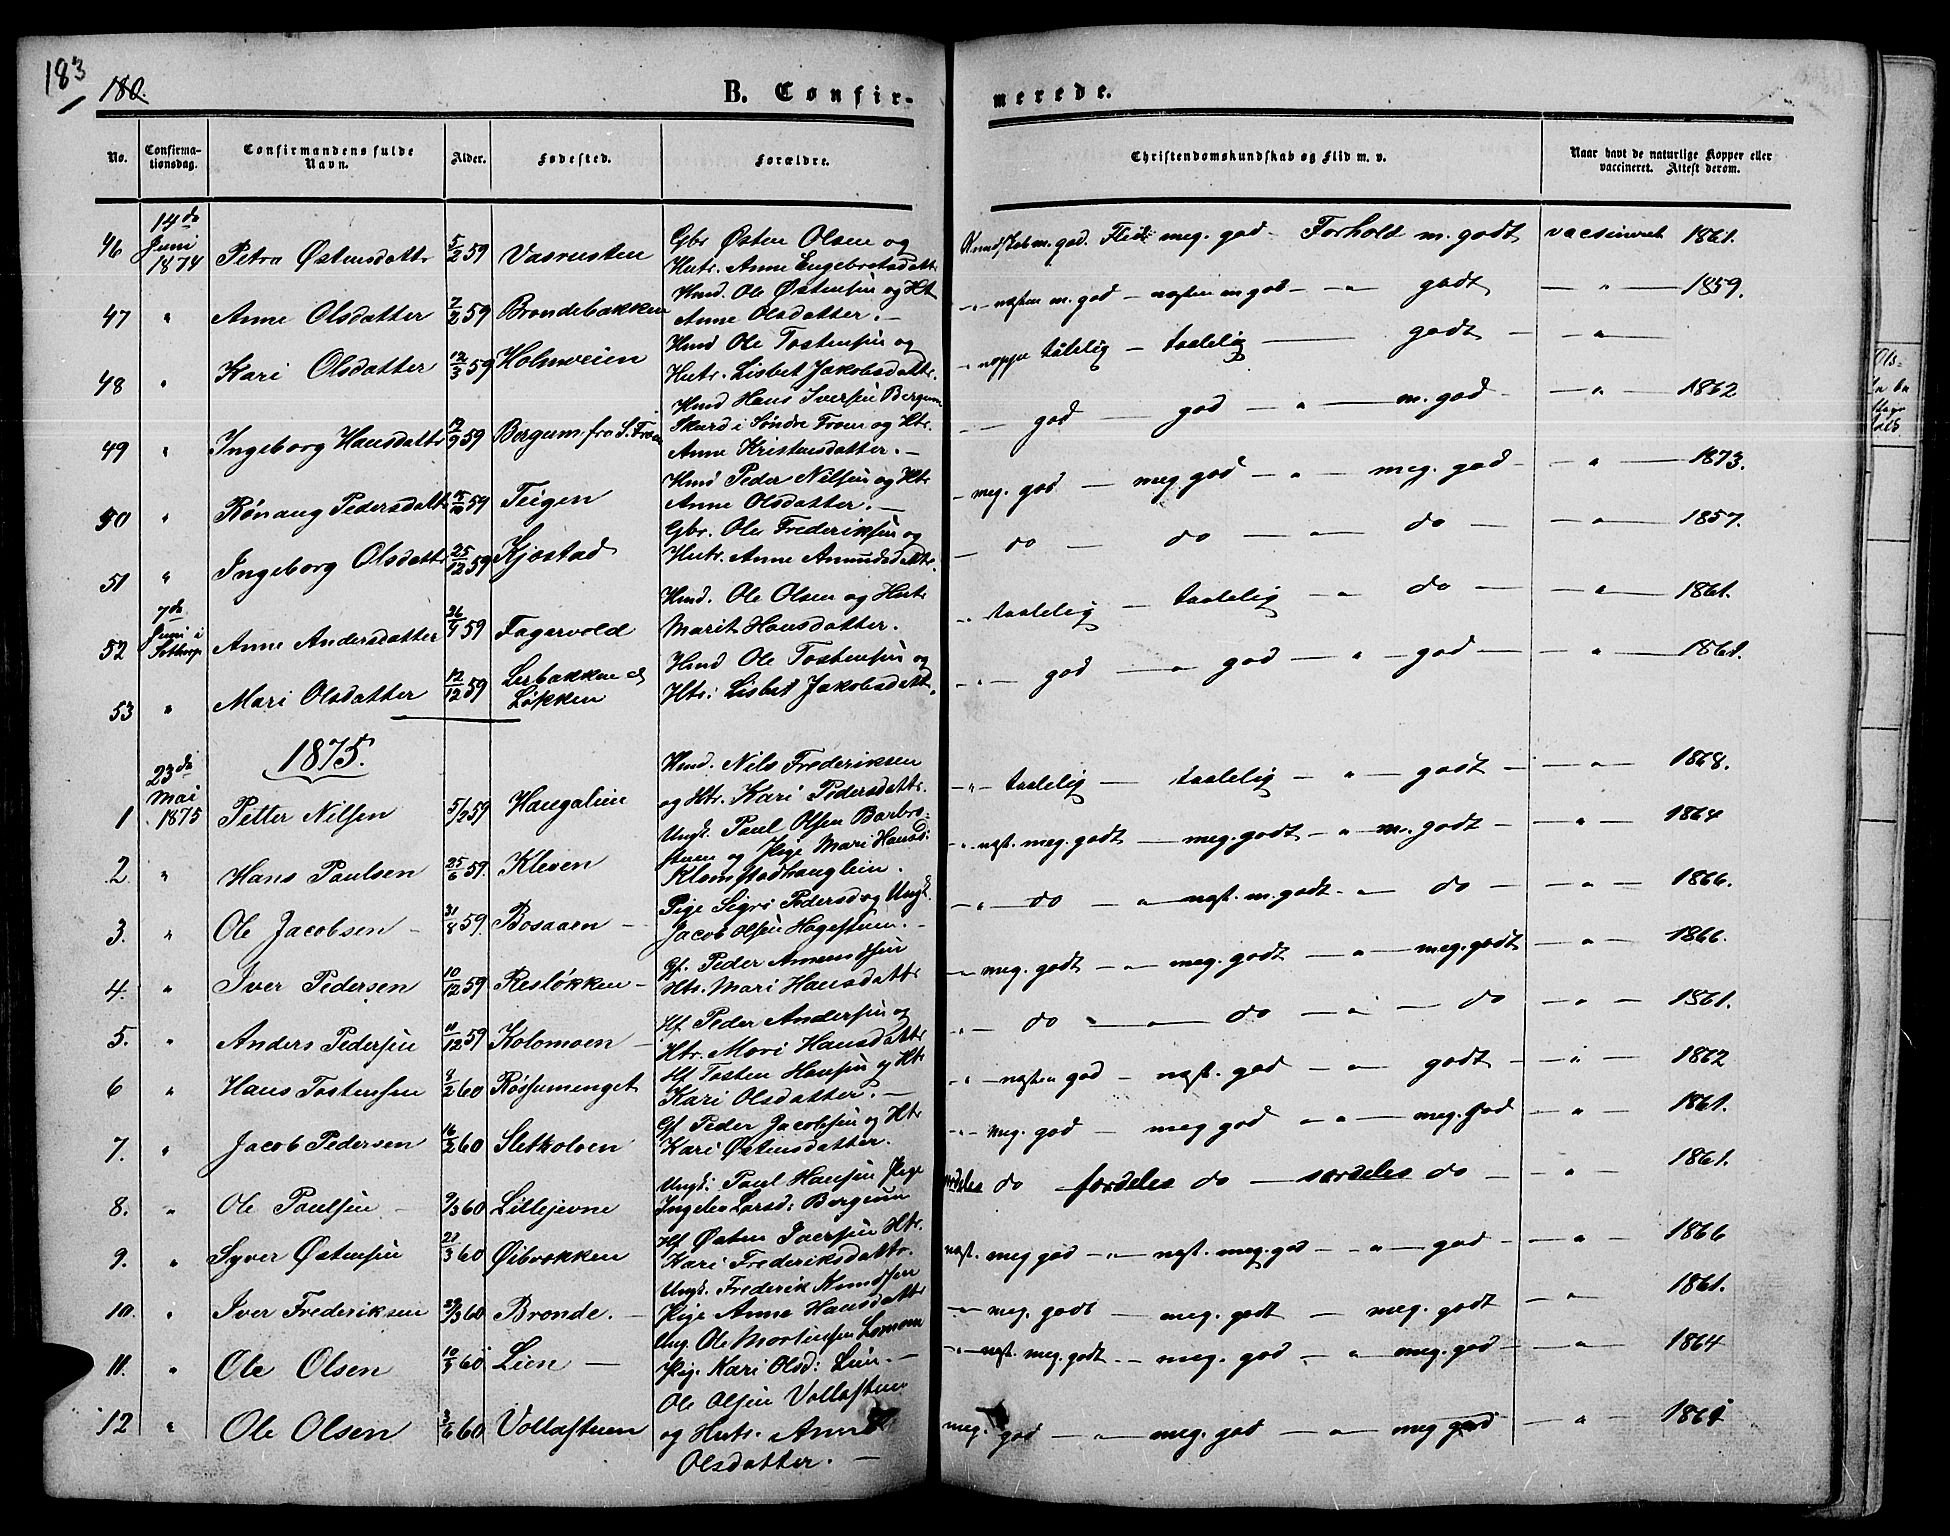 183
180.
B. Confirmerede.
No.
Confirmationsdag.
Confirmandens fulde Navn.
Alder.
Fødested.
Forældre.
Christendomskundskab og Flid m. v.
Naar havt de naturlige Kopper eller vaccineret. Attest derom.
46 14de Juni 1874 Petra Østensdattr 5/2 59 Vasrusten Gbr Østen Olsen og Hutr. Anne Engebretsdattr Kundskab m. god. Flid meg. god - Forhold m. godt vaccineret 1861.
47 " Anne Olsdatter 2/2 59 Brondebakken Hmd. Ole Østensen og Ht Anne Olsdatter. - " næsten m. god - næsten m god - " godt - " - 1859.
48 " Kari Olsdatter 12/3 59 Holmveien Hmd Ole Tostensen og Hutr. Lisbet Jakobsdattr. - " neppe tålelig - taalelig - godt - "
49 " Ingeborg Hansdattr 12/9 59 Bergum fra S. Fron Hmd Hans Iversen Bergum Skurd i Søndre Fron og Htr. Anne Kristensdatter. - god - god - " - m. god - " - 1862
50 " Rønaug Pedersdattr 59 Teigen Hmd Peder Nilsen og Htr Anne Olsdatter. - meg. god - meg god - " - meg. god - " - 1873.
51 " Ingeborg Olsdattr 25/12 59 Kjøstad Gbr. Ole Frederiksen og Hutr. Anne Amundsdattr. - do - do - " - do - " - 1857.
52 7de Juni i Anne Andersdatter 26/4 59 Fagervold Hmd. Ole Olsen og Hutr Marit Hansdatter. - " taalelig - taalelig - " - do - " - 1861.
53 " Mari Olsdatter 12/12 59 Lerbakken Løkken Hmd Ole Tostensen og Htr: Lisbet Jakobsdatt. - " - god - " god - " - god - " - 1861.
1875.
1 23de Mai 1875 Petter Nilsen 5/2 59 Haugalien Hmd. Nils Frederiksen og Htr. Kari Pedersdattr. - " - taalelig - taalelig - " - godt - " - 1868.
2 " Hans Paulsen 25/6 59. Kleven Ungk. Paul Olsen Barbrostuen og Pige Mari Hansd: Klomstadhauglien. - " næst. meg. godt - meg. godt - " m. godt - " - 1864
3. " Ole Jacobsen - 31/8 59. Bosaaen - Pige Sigri Pedersd og Ungk. Jacob Olsen Hagestuen. - " - do - " næst. m. godt - " - do - " - 1866.
4. " Iver Pedersen 10/12 59 Resløkken - Gf. Peder Amundsen Htr. Mari Hansdattr - " meg. godt - " - meg. godt - " - meg. godt - " - 1866.
5. " Anders Pedersen 11/12 59 Kolomoen - Hf. Peder Andersen og Htr. Mari Hansdattr - " - do - " - do - " - do - " - 1861.
6 " Hans Tostensen 8/2 60 Røssumenget Hf Tosten Hansen og Ht Kari Olsdatter. - " - næsten god - næst. god - " - godt - " - 1862
7. " Jacob Pedersen 16/2 60 Sletholen Gf Peder Jacobsen og Ht Kari Østensdatter. - " - meg. god - meg god - " - meg. god - " - 1861.
8. " Ole Paulsen - 9/3 60 Lillejevne Ungk: Paul Hansen Pige Ingelev Larsd: Bergum særdeles do særdeles do - særdeles do - " - 1861.
9. " Syver Østensen 21/3 60 Øibrekken Hf Østen Iversen Htr. Kari Frederiksdattr. næst. meg god - " næst. meg. god - " - god - " - 1866
10. " Iver Frederiksen 29/3 60 Bronde. - Ungk. Frederik Knudsen Pige Anne Hansdattr - " meg. godt - meg. godt - meg. godt - " - 1861.
11. " Ole Olsen 10/5 60 Lien - Ung. Ole Mortensen Lomoen Pig. Kari Olsd: Lien. - " - næst. meg. godt. - meg. god - " meg. god - " - 1864
12 " Ole Olsen 3/6 60 Vollastuen Ole Olsen Vollastuen og Hutr. Anne Olsdatter. - meg. god - " - meg. god - " - meg god - " - 1864